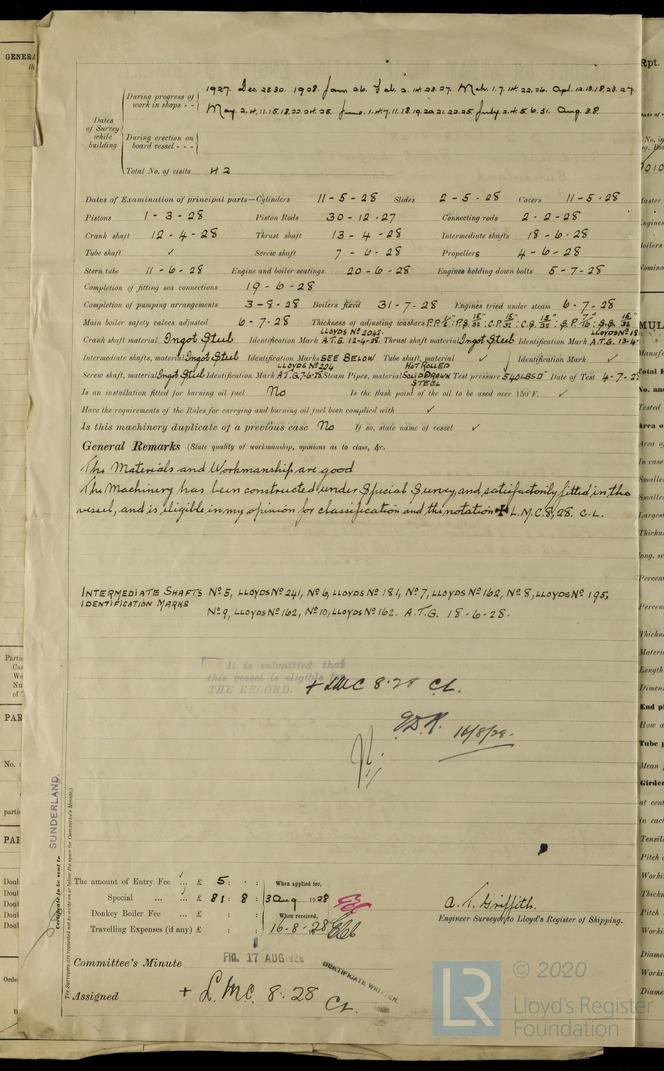 1927. Dec. 28.30. 1928. Jan. 26. Feb. 2. 14. 23. 27. Mch. 1. 7. 14. 22. 26. Apl. 12. 13. 18. 23. 27.
During progress of work in shops - -
May 2. 4. 11. 15. 18. 22. 24. 25. June. 1. 4. 7. 11. 18. 19. 20. 21. 22. 25 July. 2. 4. 5. 6. 31. Aug. 3.
Dates of Survey while building
During erection on board vessel - - -
Total No. of visits 42
Dates of Examination of principal parts—Cylinders 11-5-28 Slides 2-5-28 Covers 11-5-28
Pistons 1-3-28 Piston Rods 30-12-27 Connecting rods 2-2-28
Crank shaft 12-4-28 Thrust shaft 13-4-28 Intermediate shafts 18-6-28
Tube shaft ✓ Screw shaft 7-6-28 Propellers 4-6-28
Stern tube 11-6-28 Engine and boiler seatings 20-6-28 Engines holding down bolts 5-7-28
Completion of fitting sea connections 19-6-28
Completion of pumping arrangements 3-8-28 Boilers fixed 31-7-28 Engines tried under steam 6-7-28
Main boiler safety valves adjusted 6-7-28 Thickness of adjusting washers
Crank shaft material Ingot Steel Identification Mark LLOYDS No 2042. A.T.G. 12-4-28. Thrust shaft material Ingot Steel Identification Mark LLOYDS No 18 A.T.G. 13-4-
Intermediate shafts, material Ingot Steel Identification Marks SEE BELOW Tube shaft, material ✓ Identification Mark ✓
Screw shaft, material Ingot Steel Identification Mark LLOYDS No 204 A.T.G. 7-6-28 Steam Pipes, material HOT ROLLED SOLID DRAWN STEEL Test pressure 540 LBS □" Date of Test 4-7-28
Is an installation fitted for burning oil fuel No Is the flash point of the oil to be used over 150°F. ✓
Have the requirements of the Rules for carrying and burning oil fuel been complied with ✓
Is this machinery duplicate of a previous case No If so, state name of vessel ✓
General Remarks (State quality of workmanship, opinions as to class, &c.
The Materials and Workmanship are good
The Machinery has been constructed under Special Survey, and satisfactorily fitted in the
vessel, and is eligible in my opinion for classification and the notation ✠ L.M.C. 8, 28. C.L.
INTERMEDIATE SHAFTS No 5, LLOYDS No 241, No 6, LLOYDS No 181, No 7, LLOYDS No 162, No 8, LLOYDS No 195,
IDENTIFICATION MARKS
No 9, LLOYDS No 162, No 10, LLOYDS No 162. A.T.G. 18-6-28.
It is submitted that
this vessel is eligible for
THE RECORD. + LMC 8.28 CL.
16/8/28.
SUNDERLAND
Certificate to be sent to
The Surveyors are requested not to write on or below the space for Committee's Minute.
The amount of Entry Fee ... £ 5 : - :
When applied for,
Special ... ... £ 81 : 8 : 3 Aug 1928
Donkey Boiler Fee ... £ : :
When received,
Travelling Expenses (if any) £ : : 16-8-28
A. T. Griffith.
Engineer Surveyor to Lloyd's Register of Shipping.
Committee's Minute FRI. 17 AUG 1928
CERTIFICATE WRITTEN
Assigned + L.M.C. 8.28
CL.
LR © 2020
Lloyd's Register
Foundation